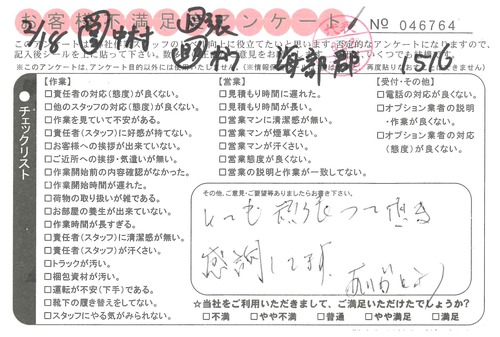 お客様不満足度アンケート
No 046764
5/18
1516
このアンケートは
※このアンケートは、アンケート目的以外には使用いたしません。
チェックリスト
【作業】
□責任者の対応(態度)が良くない。
□他のスタッフの対応(態度)が良くない。
□作業を見ていて不安がある。
□責任者(スタッフ)に好感が持てない。
□お客様への挨拶が出来ていない。
□ご近所への挨拶・気遣いが無い。
□作業開始前の内容確認がなかった。
□作業開始時間が遅れた。
□荷物の取り扱いが雑である。
□お部屋の養生が出来ていない。
□作業時間が長すぎる。
□責任者(スタッフ)に清潔感が無い。
□責任者(スタッフ)が汗くさい。
□トラックが汚い。
□梱包資材が汚い。
□運転が不安(下手)である。
□靴下の履き替えをしてない。
□スタッフにやる気がみられない。
【営業】
□見積もり時間に遅れた。
□見積もり時間が長い。
□営業マンに清潔感が無い。
□営業マンが煙草くさい。
□営業マンが汗くさい。
□営業態度が良くない。
□営業の説明と作業が一致してない。
【受付・その他】
□電話の対応が良くない。
□オプション業者の説明
・作業が良くない。
□オプション業者の対応
(態度)が良くない。
その他、ご意見・ご要望等ありましたらお書き下さい。
とても頑張って頂き
感謝してます。
☆当社をご利用いただきまして、ご満足いただけたでしょうか?
□不満 □やや不満 □普通 □やや満足 □満足